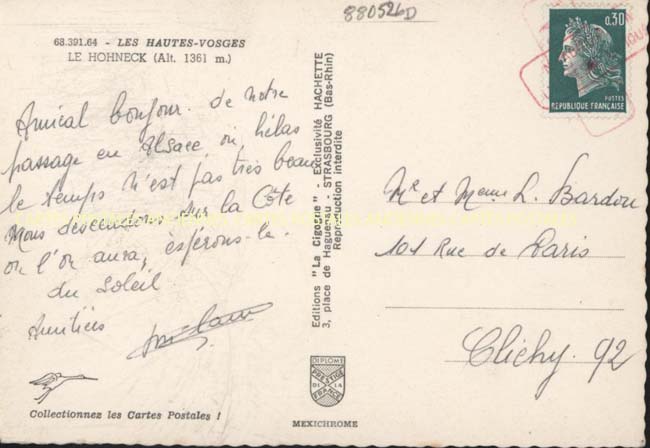 880526D
68.391.64 - LES HAUTES-VOSGES
LE HOHNECK (Alt. 1361 m.)
Amical bonjour de notre
passage en Alsace où, hélas
le temps n'est pas très beau
Nous descendons sur la Côte
où l'on aura, espérons-le.
du soleil
Amitiés
Collectionnez les Cartes Postales !
Editions "La Cigogne" - Exclusivité HACHETTE
3, place de Haguenau - STRASBOURG (Bas-Rhin)
Reproduction interdite
DIPLOME
PRESTIGE
DE LA
FRANCE
MEXICHROME
0,30
POSTES
REPUBLIQUE FRANÇAISE
Mr et Meme L. Bardou
101 Rue de Paris
Clichy. 92